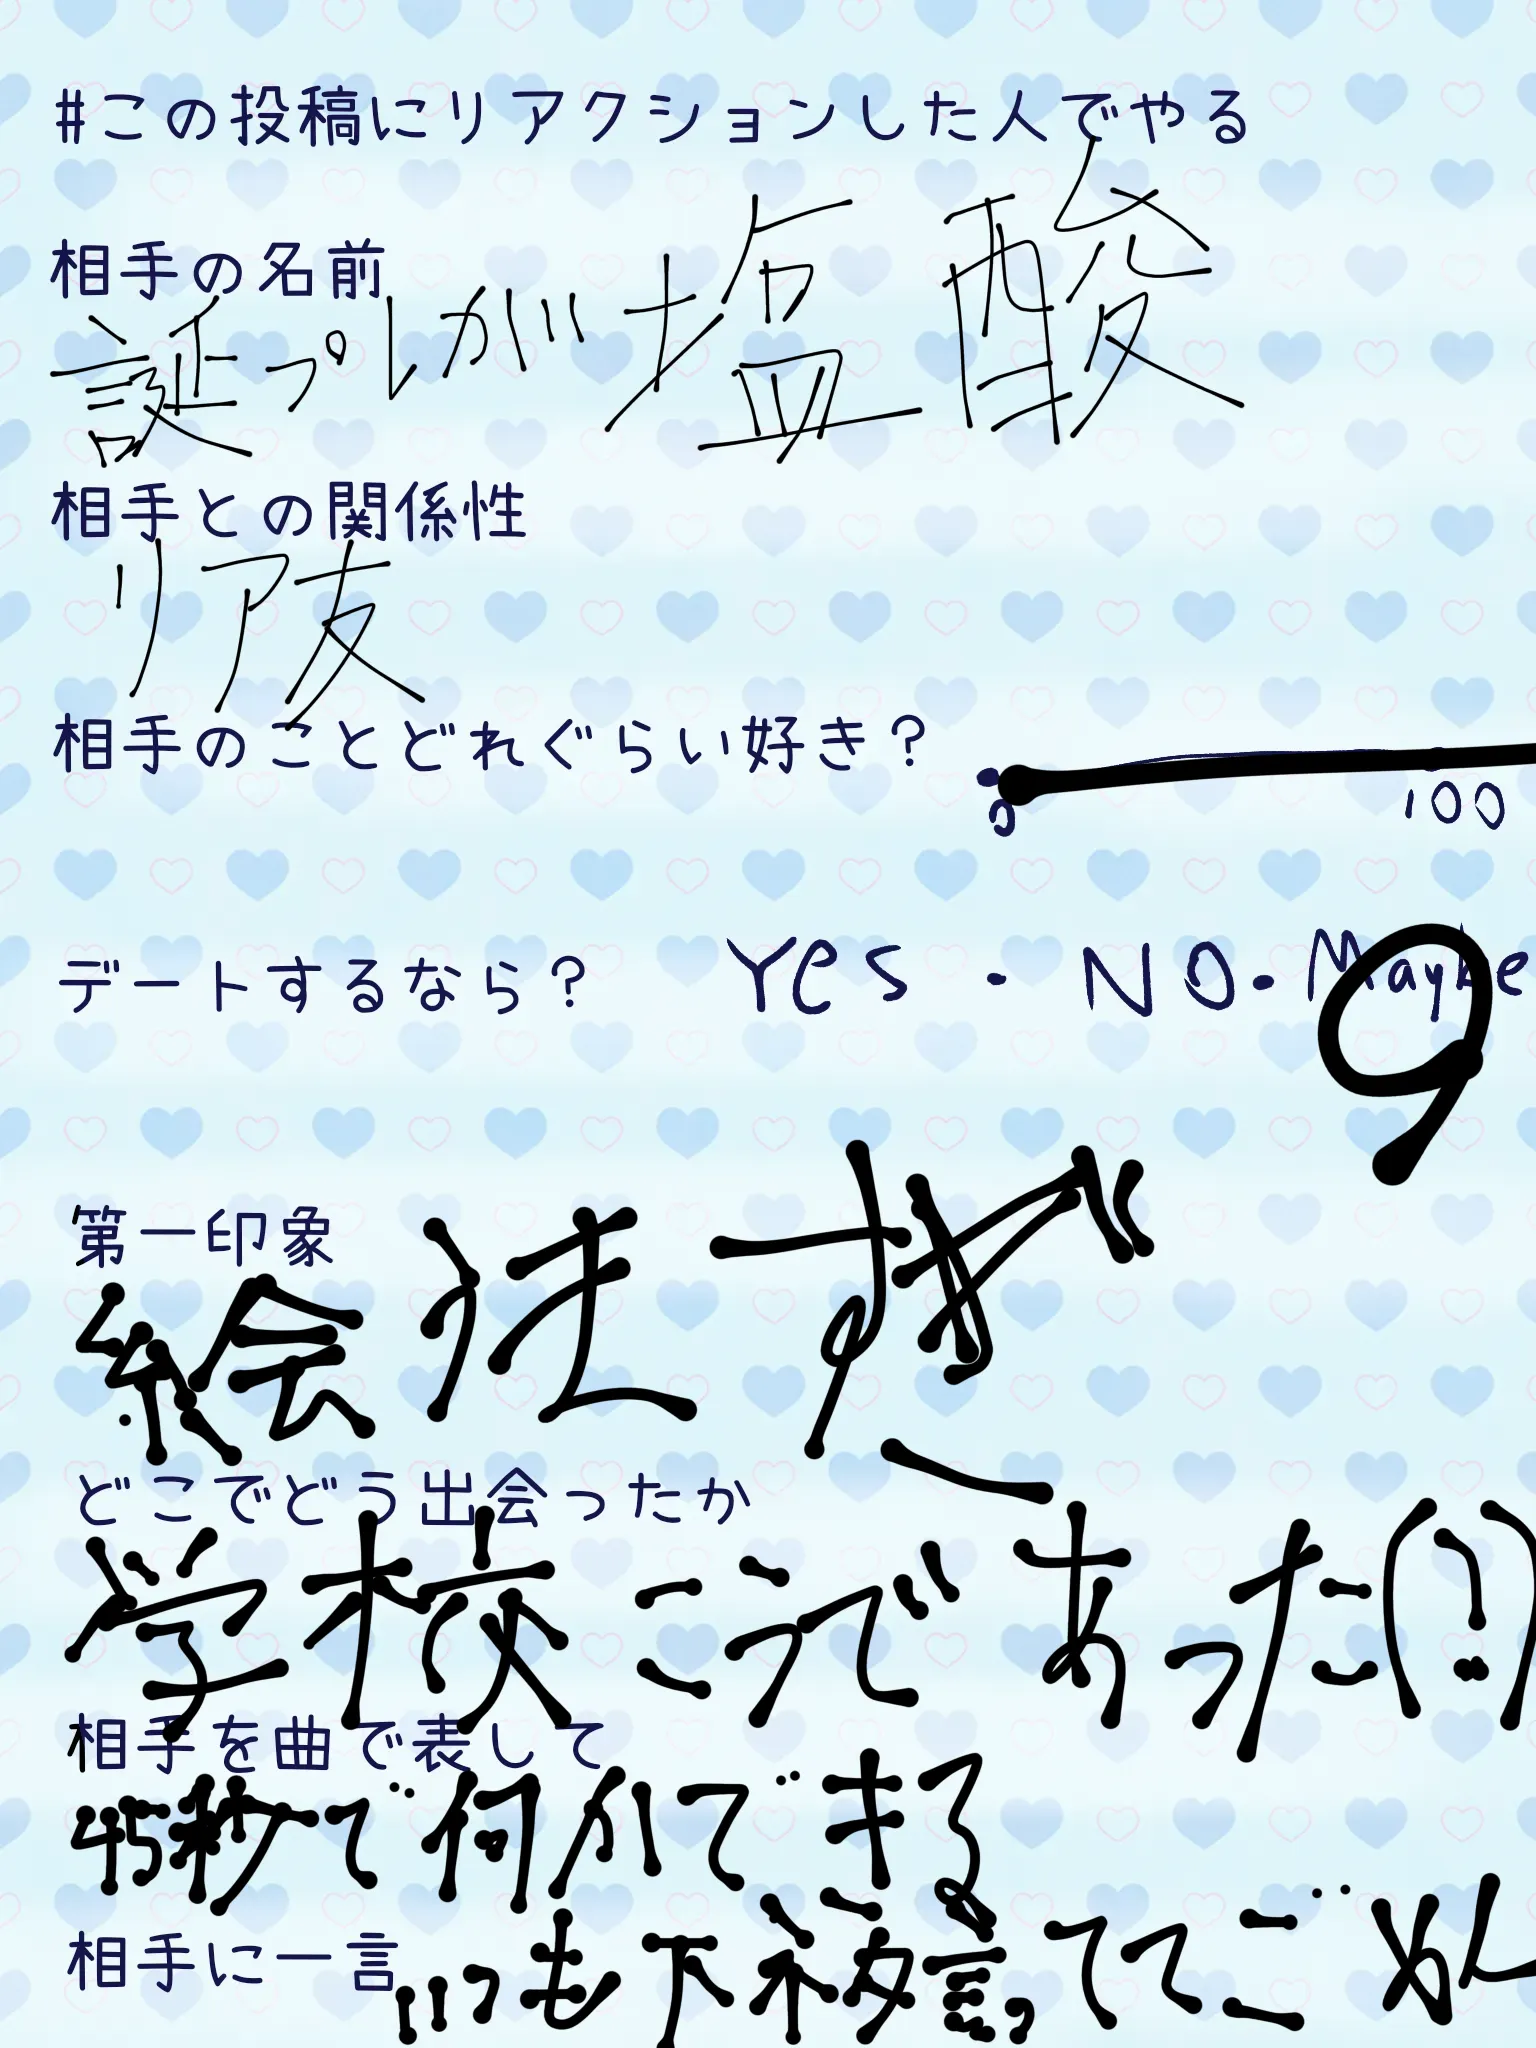 #この投稿にリアクションした人でやる
相手の名前
誕プレが塩酸
相手との関係性
リア友
相手のことどれぐらい好き?
0 100
デートするなら? Yes・NO・Maybe
第一印象
絵往すぎ
どこでどう出会ったか
学校こうであった(?)
相手を曲で表して
45秒で何ができる
相手に一言
いつも下ネタ言っててごめん